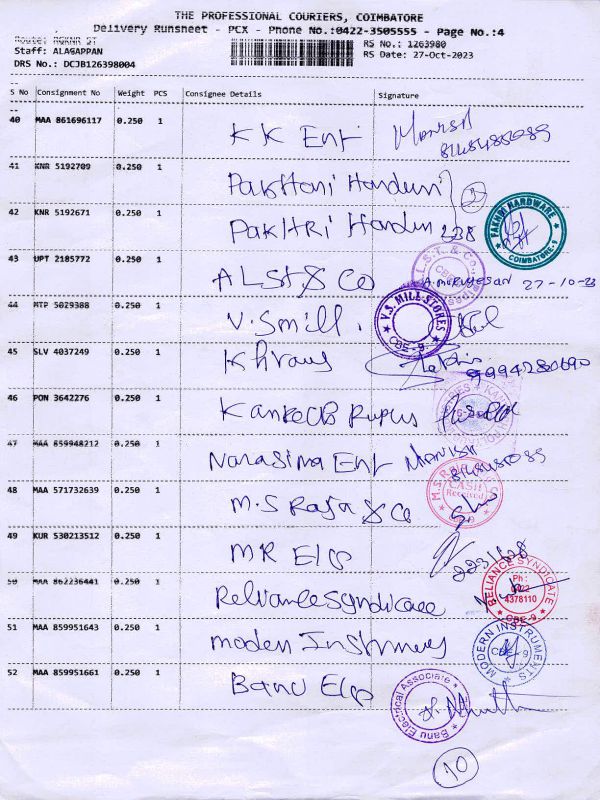 THE PROFESSIONAL COURIERS, COIMBATORE
Delivery Runsheet - PCX - Phone No.:0422-3505555 - Page No.:4
Staff: ALAGAPPAN
DRS No.: DCJB126398004
RS No.: 1263980
RS Date: 27-Oct-2023
S No Consignment No Weight PCS Consignee Details Signature
40 MAA 861696117 0.250 1 KK Ent
41 KNR 5192709 0.250 1 2
42 KNR 5192671 0.250 1 238 PAKHRI HARDWARE COIMBATORE-1
43 UPT 2185772 0.250 1 ALST & Co 27-10-23
44 MTP 5029388 0.250 1 V.S mill. V.S. MILL STORES CBE-9
45 SLV 4037249 0.250 1
46 PON 3642276 0.250 1
47 MAA 859948212 0.250 1 Narasima Ent Manish
48 MAA 571732639 0.250 1 M.S Raja & Co CASH Received
49 KUR 530213512 0.250 1 MR Elp
50 MAA 862236441 0.250 1 Reliance Syndicate RELIANCE SYNDICATE Ph : 0422 4378110 CBE-9
51 MAA 859951643 0.250 1 MODERN INSTRUMENTS CBE-9
52 MAA 859951661 0.250 1 Banu Elp Banu Electrical Associate
10